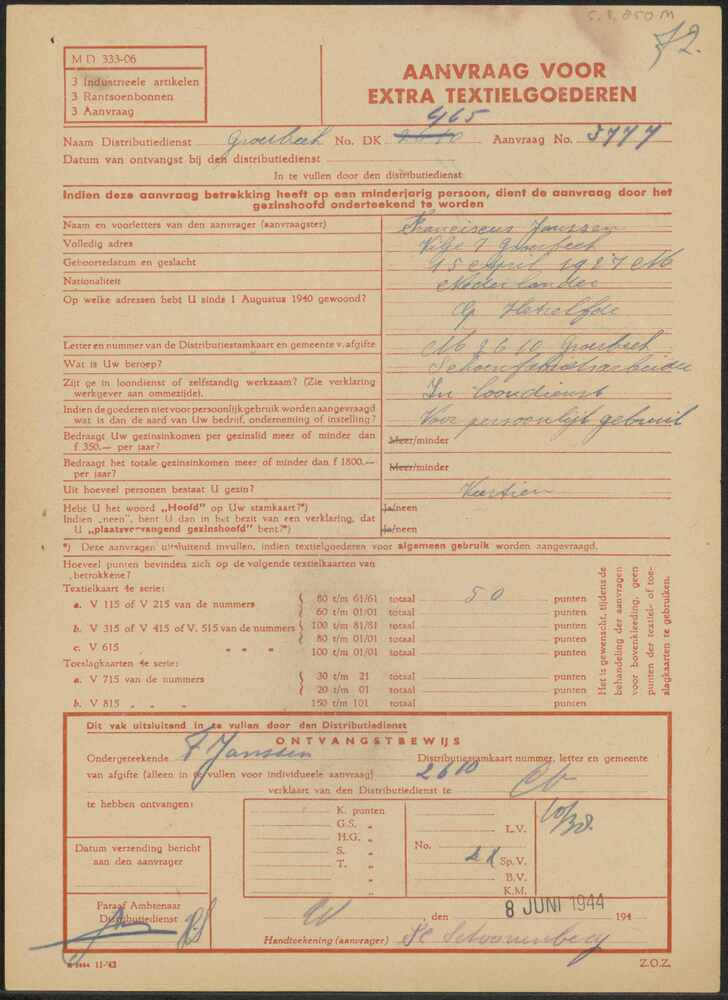 72.
M D 333-06
3 Industrieele artikelen
3 Rantsoenbonnen
3 Aanvraag
AANVRAAG VOOR
EXTRA TEXTIELGOEDEREN
465
Naam Distributiedienst Groesbeek No. DK Aanvraag No. 5777
Datum van ontvangst bij den distributiedienst
In te vullen door den distributiedienst
Indien deze aanvraag betrekking heeft op een minderjarig persoon, dient de aanvraag door het
gezinshoofd onderteekend te worden
Naam en voorletters van den aanvrager (aanvraagster) Franciscus Janssen
Volledig adres Groesbeek
Geboortedatum en geslacht 15 April 1927 M
Nationaliteit Nederlander
Op welke adressen hebt U sinds 1 Augustus 1940 gewoond? Op Hetzelfde
Letter en nummer van de Distributiestamkaart en gemeente v. afgifte M 2610 Groesbeek
Wat is Uw beroep? Schoenfabrieksarbeider
Zijt ge in loondienst of zelfstandig werkzaam? (Zie verklaring
werkgever aan ommezijde). In loondienst
Indien de goederen niet voor persoonlijk gebruik worden aangevraagd
wat is dan de aard van Uw bedrijf, onderneming of instelling? Voor persoonlijk gebruik
Bedraagt Uw gezinsinkomen per gezinslid meer of minder dan
f 350.— per jaar? Meer/minder
Bedraagt het totale gezinsinkomen meer of minder dan f 1800.—
per jaar? Meer/minder
Uit hoeveel personen bestaat U gezin? Veertien
Hebt U het woord „Hoofd" op Uw stamkaart?*) Ja/neen
Indien „neen", bent U dan in het bezit van een verklaring, dat
U „plaatsvervangend gezinshoofd" bent?*) Ja/neen
*) Deze aanvragen uitsluitend invullen, indien textielgoederen voor algemeen gebruik worden aangevraagd.
Hoeveel punten bevinden zich op de volgende textielkaarten van
betrokkene?
Textielkaart 4e serie:
a. V 115 of V 215 van de nummers 80 t/m 61/61 totaal 50 punten
60 t/m 01/01 totaal punten
b. V 315 of V 415 of V. 515 van de nummers 100 t/m 81/81 totaal punten
80 t/m 01/01 totaal punten
c. V 615 „ „ „ 100 t/m 01/01 totaal punten
Toeslagkaarten 4e serie:
a. V 715 van de nummers 30 t/m 21 totaal punten
20 t/m 01 totaal punten
b. V 815 „ „ „ 150 t/m 101 totaal punten
Het is gewenscht, tijdens de
behandeling der aanvragen
voor bovenkleeding, geen
punten der textiel- of toe-
slagkaarten te gebruiken.
Dit vak uitsluitend in te vullen door den Distributiedienst
ONTVANGSTBEWIJS
Ondergeteekende F Janssen Distributiestamkaart nummer, letter en gemeente
van afgifte (alleen in te vullen voor individueele aanvraag) 2610
verklaart van den Distributiedienst te
te hebben ontvangen:
K. punten
G.S. „
H.G. „
S. „
T. „
L.V.
No. Sp.V.
B.V.
K.M.
10/38.
Datum verzending bericht
aan den aanvrager
Paraaf Ambtenaar
Distributiedienst
, den 8 JUNI 1944 194
Handteekening (aanvrager)
K 2444 11-'43
Z.O.Z.